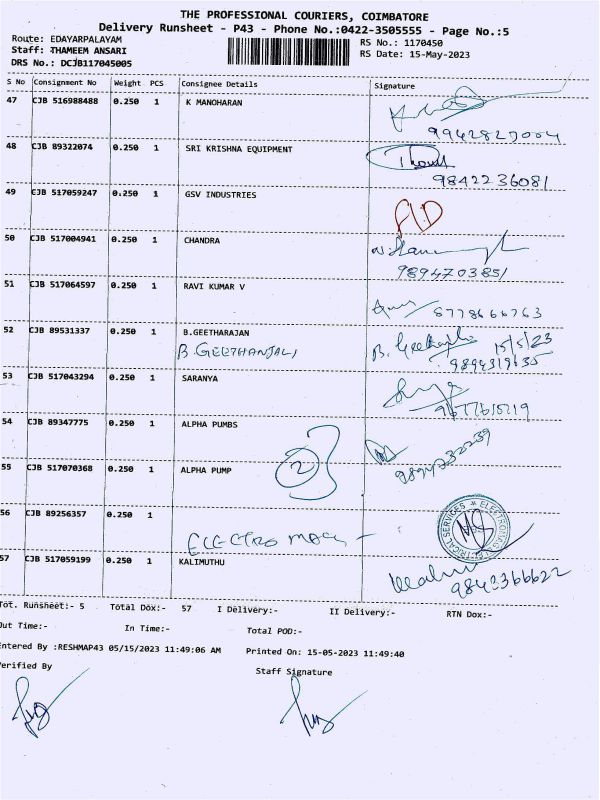 THE PROFESSIONAL COURIERS, COIMBATORE
Delivery Runsheet - P43 - Phone No.:0422-3505555 - Page No.:5
Route: EDAYARPALAYAM
RS No.: 1170450
Staff: THAMEEM ANSARI
RS Date: 15-May-2023
DRS No.: DCJB117045005
S No Consignment No Weight PCS Consignee Details Signature
47 CJB 516988488 0.250 1 K MANOHARAN
48 CJB 89322074 0.250 1 SRI KRISHNA EQUIPMENT
9842236081
49 CJB 517059247 0.250 1 GSV INDUSTRIES
50 CJB 517004941 0.250 1 CHANDRA
9894703851
51 CJB 517064597 0.250 1 RAVI KUMAR V
52 CJB 89531337 0.250 1 B.GEETHARAJAN
B.GEETHANJALI
15/5/23
53 CJB 517043294 0.250 1 SARANYA
54 CJB 89347775 0.250 1 ALPHA PUMBS
55 CJB 517070368 0.250 1 ALPHA PUMP
2
56 CJB 89256357 0.250 1
ELECTRO
57 CJB 517059199 0.250 1 KALIMUTHU
9843366622
Tot. Runsheet:- 5 Total Dox:- 57 I Delivery:- II Delivery:- RTN Dox:-
Out Time:- In Time:- Total POD:-
Entered By :RESHMAP43 05/15/2023 11:49:06 AM Printed On: 15-05-2023 11:49:40
Verified By Staff Signature